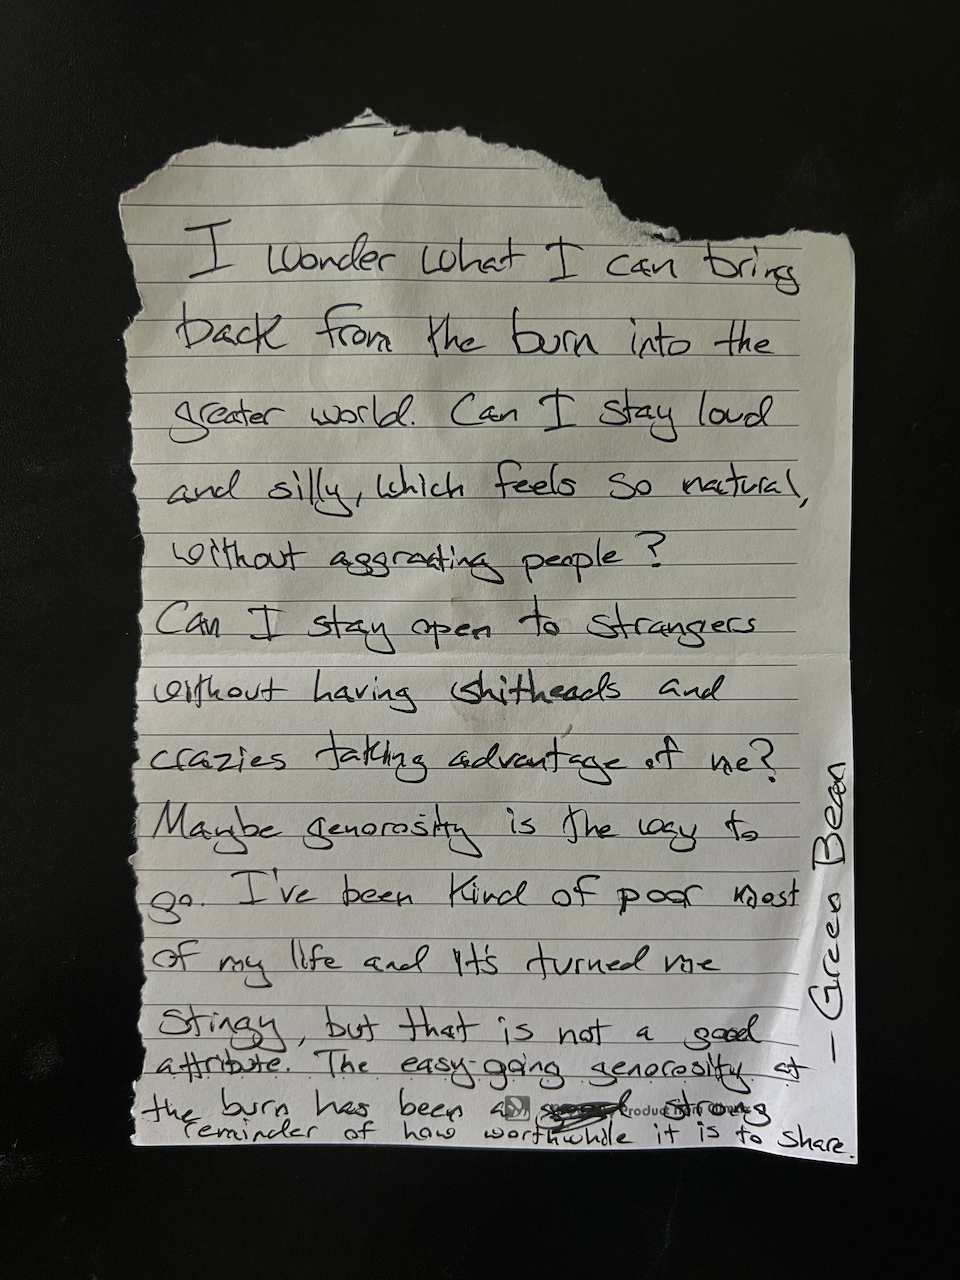 I wonder what I can bring
back from the burn into the
greater world. Can I stay loud
and silly, which feels so natural,
without aggrating people?
Can I stay open to strangers
without having shitheads and
crazies taking advantage of me?
Maybe generosity is the way to
go. I've been kind of poor most
of my life and it's turned me
stingy, but that is not a good
attribute. The easy-going generosity at
the burn has been a strong
reminder of how worthwhile it is to share.
— Green Bean